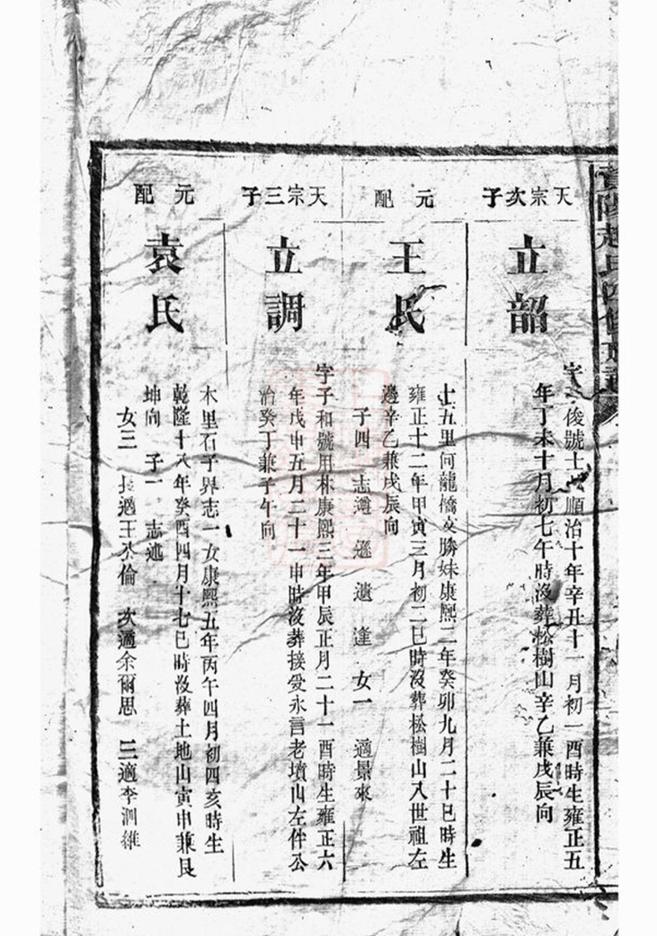 天宗次子
立韶
字 俊號士 順治十 年辛丑十一月初一酉時生雍正五
年丁未十月初七午時沒葬松樹山辛乙兼戌辰向
元配
王氏
七五里何龍橋 勝妹康熙二年癸卯九月二十巳時生
雍正十二年甲寅三月初二巳時沒葬松樹山八世祖左
邊辛乙兼戌辰向
子四 志 遜 達 女一 適景來
天宗三子
立調
字子和號用 康熙三年甲辰正月二十一酉時生雍正六
年戊申五月二十一申時沒葬接受永言老墳山左件公
治癸丁兼子午向
元配
袁氏
木里石子界志一女康熙五年丙午四月初四亥時生
乾隆十八年癸酉四月十七巳時沒葬土地山寅申兼艮
坤向 子一 志述
女三 長適王 倫 次適余爾思 三適李 維